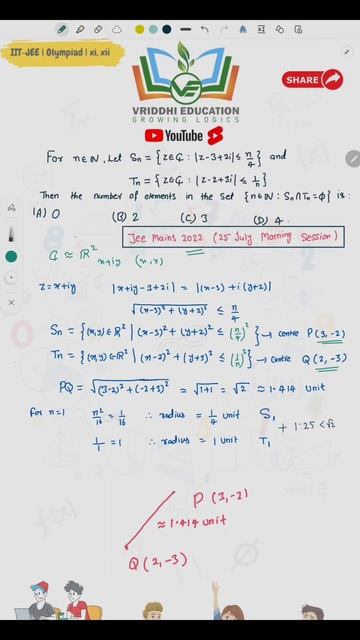 IIT-JEE | Olympiad | xi, xii
VE
VRIDDHI EDUCATION
GROWING LOGICS
YouTube
SHARE
For n∈IN, Let Sn = {z∈ℂ : |z-3+2i| ≤ n/4} and
Tn = {z∈ℂ : |z-2+3i| ≤ 1/n}
Then the number of elements in the Set {n∈IN : Sn∩Tn=ϕ} is :
(A) 0 (B) 2 (C) 3 (D) 4.
Jee Mains 2022 (25 July Morning Session)
ℂ ≈ IR²
x+iy (x,y)
z=x+iy |x+iy-3+2i| = |(x-3)+i(y+2)|
√(x-3)²+(y+2)² ≤ n/4
Sn = {(x,y)∈IR² | (x-3)²+(y+2)² ≤ (n/4)²} → centre P(3,-2)
Tn = {(x,y)∈IR² | (x-2)²+(y+3)² ≤ (1/n)²} → centre Q(2,-3)
PQ = √(3-2)²+(-2+3)² = √1+1 = √2 ≈ 1.414 unit
For n=1 n²/16 = 1/16 ∴ radius = 1/4 unit S₁
+ 1.25 < √2
1/1 = 1 ∴ radius = 1 unit T₁
P (3,-2)
≈ 1.414 unit
Q (2,-3)